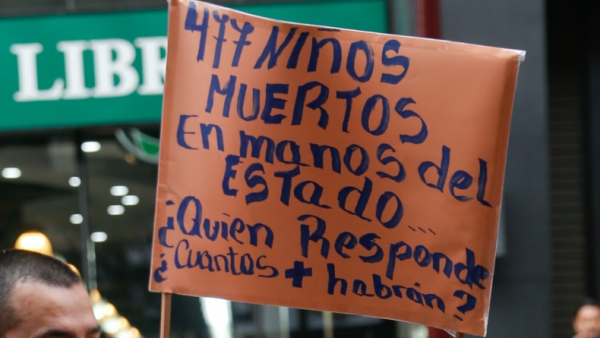 LIBR
477 NIÑOS
MUERTOS
En manos del
ESTADO...
¿Quien Responde
¿Cuantos + habrán?